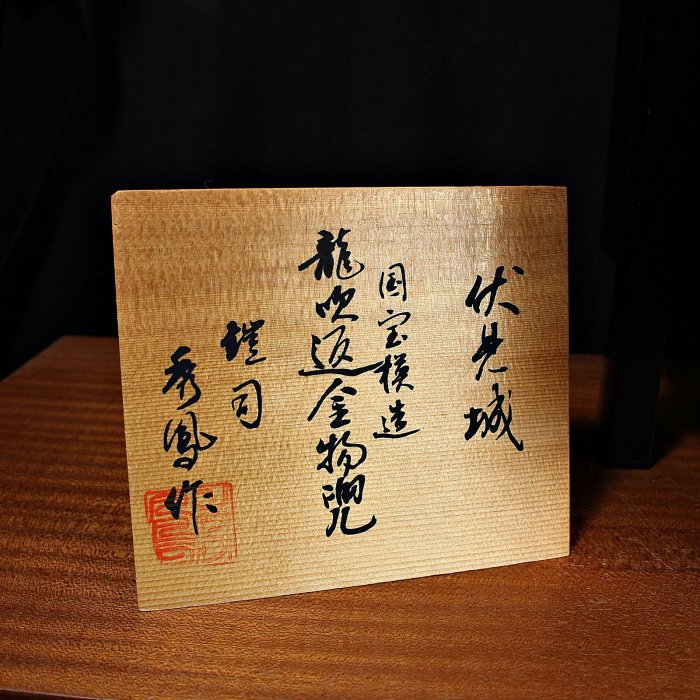 伏見城
国宝模造
龍吹返金物兜
鎧司
秀鳳作